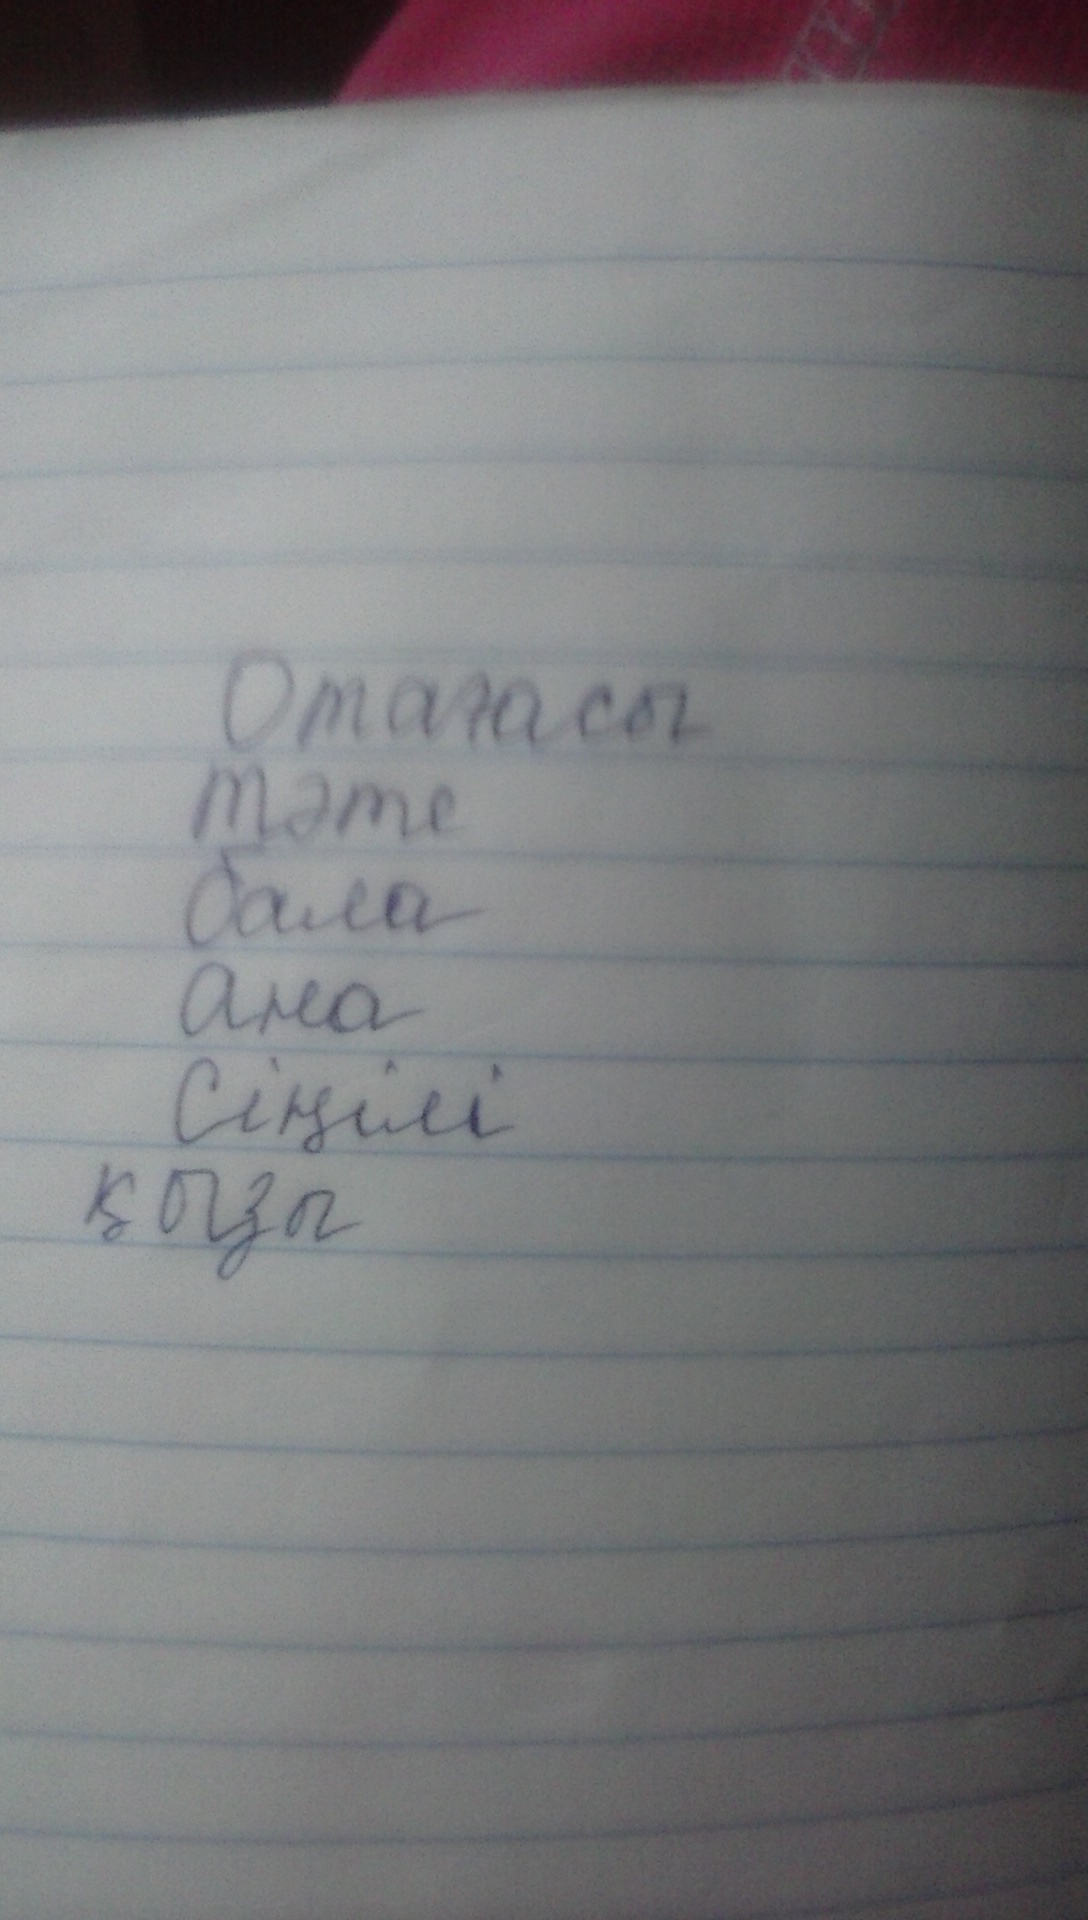 Отағасы
тәте
бала
ана
Сіңілі
қызы